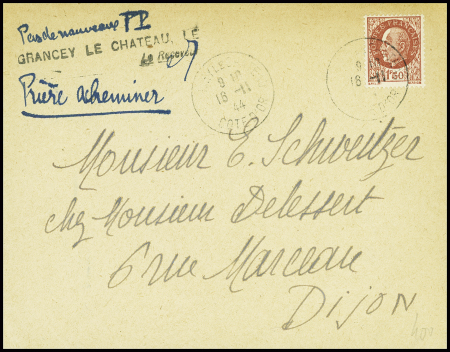 Pas de nouveaux TT
GRANCEY LE CHATEAU, LE
Le Receveur
Prière acheminer
9 H
18 -11
44
COTE D'OR
POSTES FRANÇAISES
1F50
9
18 -11
Monsieur E. Schweitzer
chez Monsieur Delessert
6 rue Marceau
DIJON